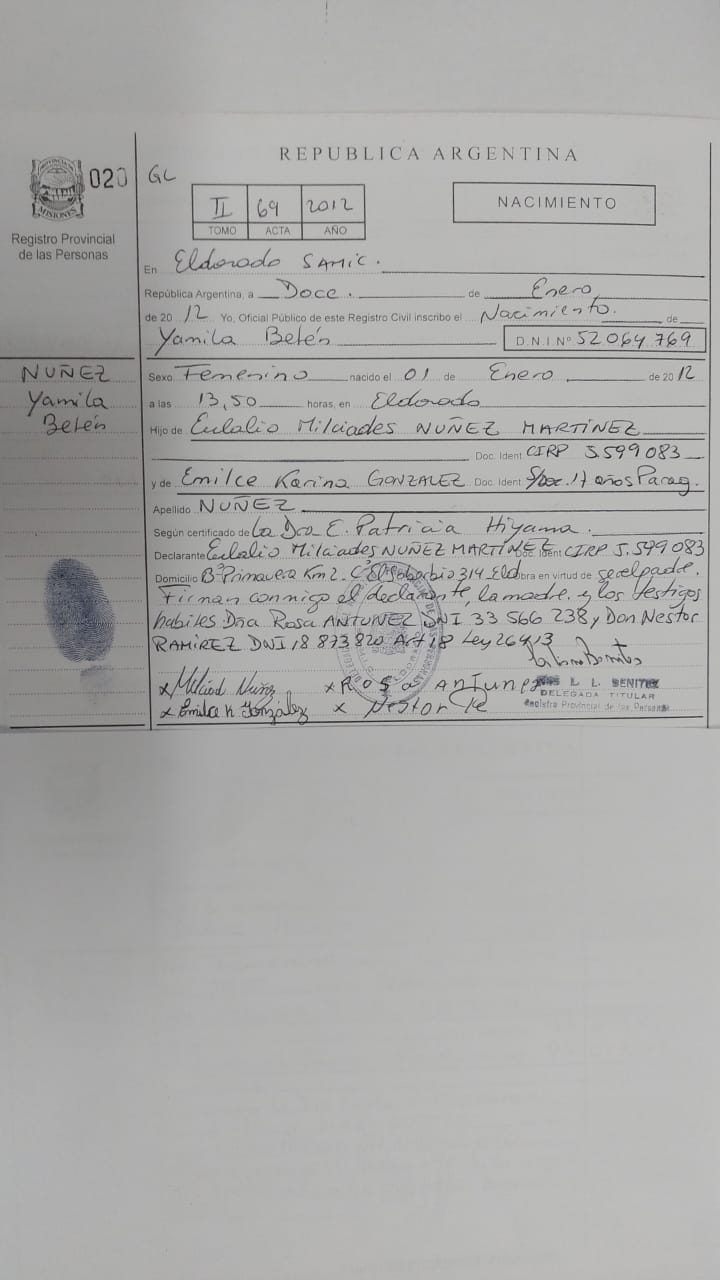 REPUBLICA ARGENTINA
PROVINCIA DE
MISIONES
020 GL
Registro Provincial
de las Personas
II 69 2012
TOMO ACTA AÑO
NACIMIENTO
En Eldorado SAMIC.
República Argentina, a Doce. de Enero
de 2012 Yo, Oficial Público de este Registro Civil inscribo el Nacimiento. de
Yamila Belén D.N.I. Nº 52064769
NUÑEZ
Yamila
Belén
Sexo Femenino nacido el 01 de Enero de 2012
a las 13,50 horas, en Eldorado
Hijo de Eulalio Milciades NUÑEZ MARTÍNEZ
Doc. Ident CIRP 5.599 083
y de Emilce Karina GONZALEZ Doc. Ident S/doc. 17 años Parag.
Apellido NUÑEZ
Según certificado de La Dra E. Patricia Hiyama.
Declarante Eulalio Milciades NUÑEZ MARTÍNEZ Doc. Ident CIRP 5.599 083
Domicilio Bº Primavera Km 2. C/ 314 Eld obra en virtud de ser el padre.
Firman conmigo el declarante, la madre. y los testigos
habiles Dña Rosa ANTUNEZ DNI 33 566 238, y Don Nestor
RAMIREZ DNI 18 873 820 Art 18 Ley 26413
x Milciad Nuñz x Rosa Antune
L. L. BENITEZ
DELEGADA TITULAR
Registro Provincial de las Personas
x Emilce K González x Nestor Re